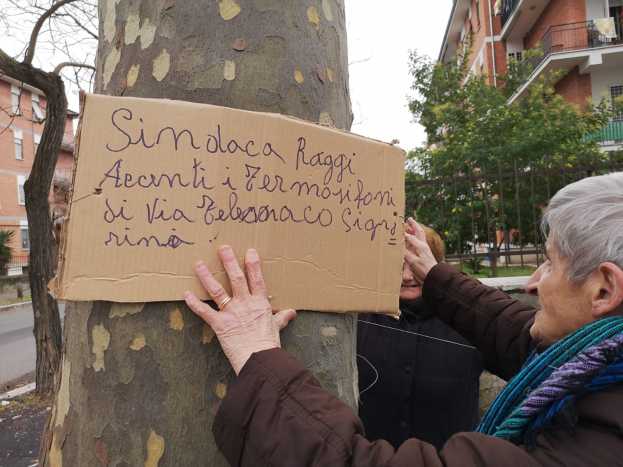 Sindaca Raggi
Accenti i Termosifoni
di Via Telemaco Signo
rini